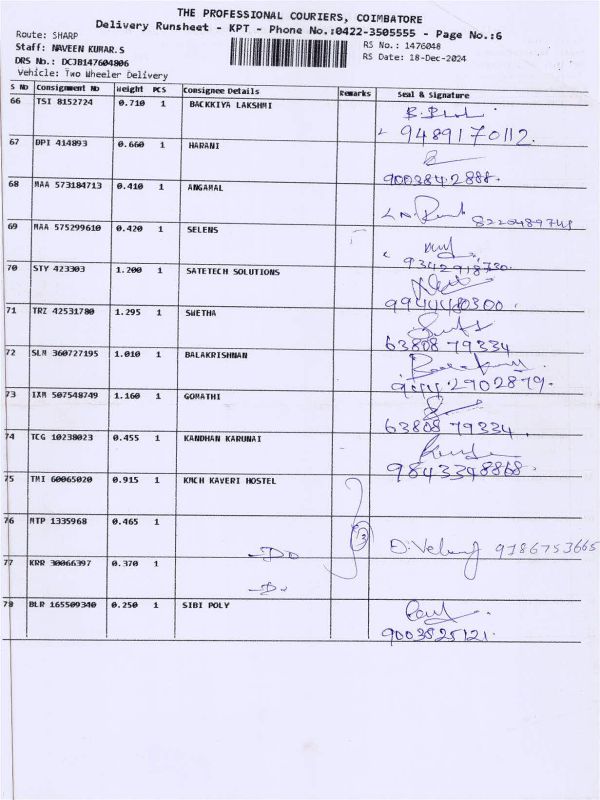 THE PROFESSIONAL COURIERS, COIMBATORE
Delivery Runsheet - KPT - Phone No.:0422-3505555 - Page No.:6
Route: SHARP
Staff: NAVEEN KUMAR.S
DRS No.: DCJB147604806
Vehicle: Two Wheeler Delivery
RS No.: 1476048
RS Date: 18-Dec-2024
S No Consignment No Weight PCS Consignee Details Remarks Seal & Signature
66 TSI 8152724 0.710 1 BACKKIYA LAKSHMI
9489170112.
67 DPI 414893 0.660 1 HARANI
9003842888.
68 MAA 573184713 0.410 1 ANGAMAL
69 MAA 575299610 0.420 1 SELENS
9342918730.
70 STY 423303 1.200 1 SATETECH SOLUTIONS
9944480300.
71 TRZ 42531780 1.295 1 SWETHA
63808 79334
72 SLM 360727195 1.010 1 BALAKRISHNAN
73 IXM 507548749 1.160 1 GOMATHI
63808 79334.
74 TCG 10238023 0.455 1 KANDHAN KARUNAI
9843348868.
75 TMI 60065020 0.915 1 KMCH KAVERI HOSTEL
76 MTP 1335968 0.465 1
-Do 3 9186753665
77 KRR 30066397 0.370 1
-Do
78 BLR 165509340 0.250 1 SIBI POLY
9003525121.